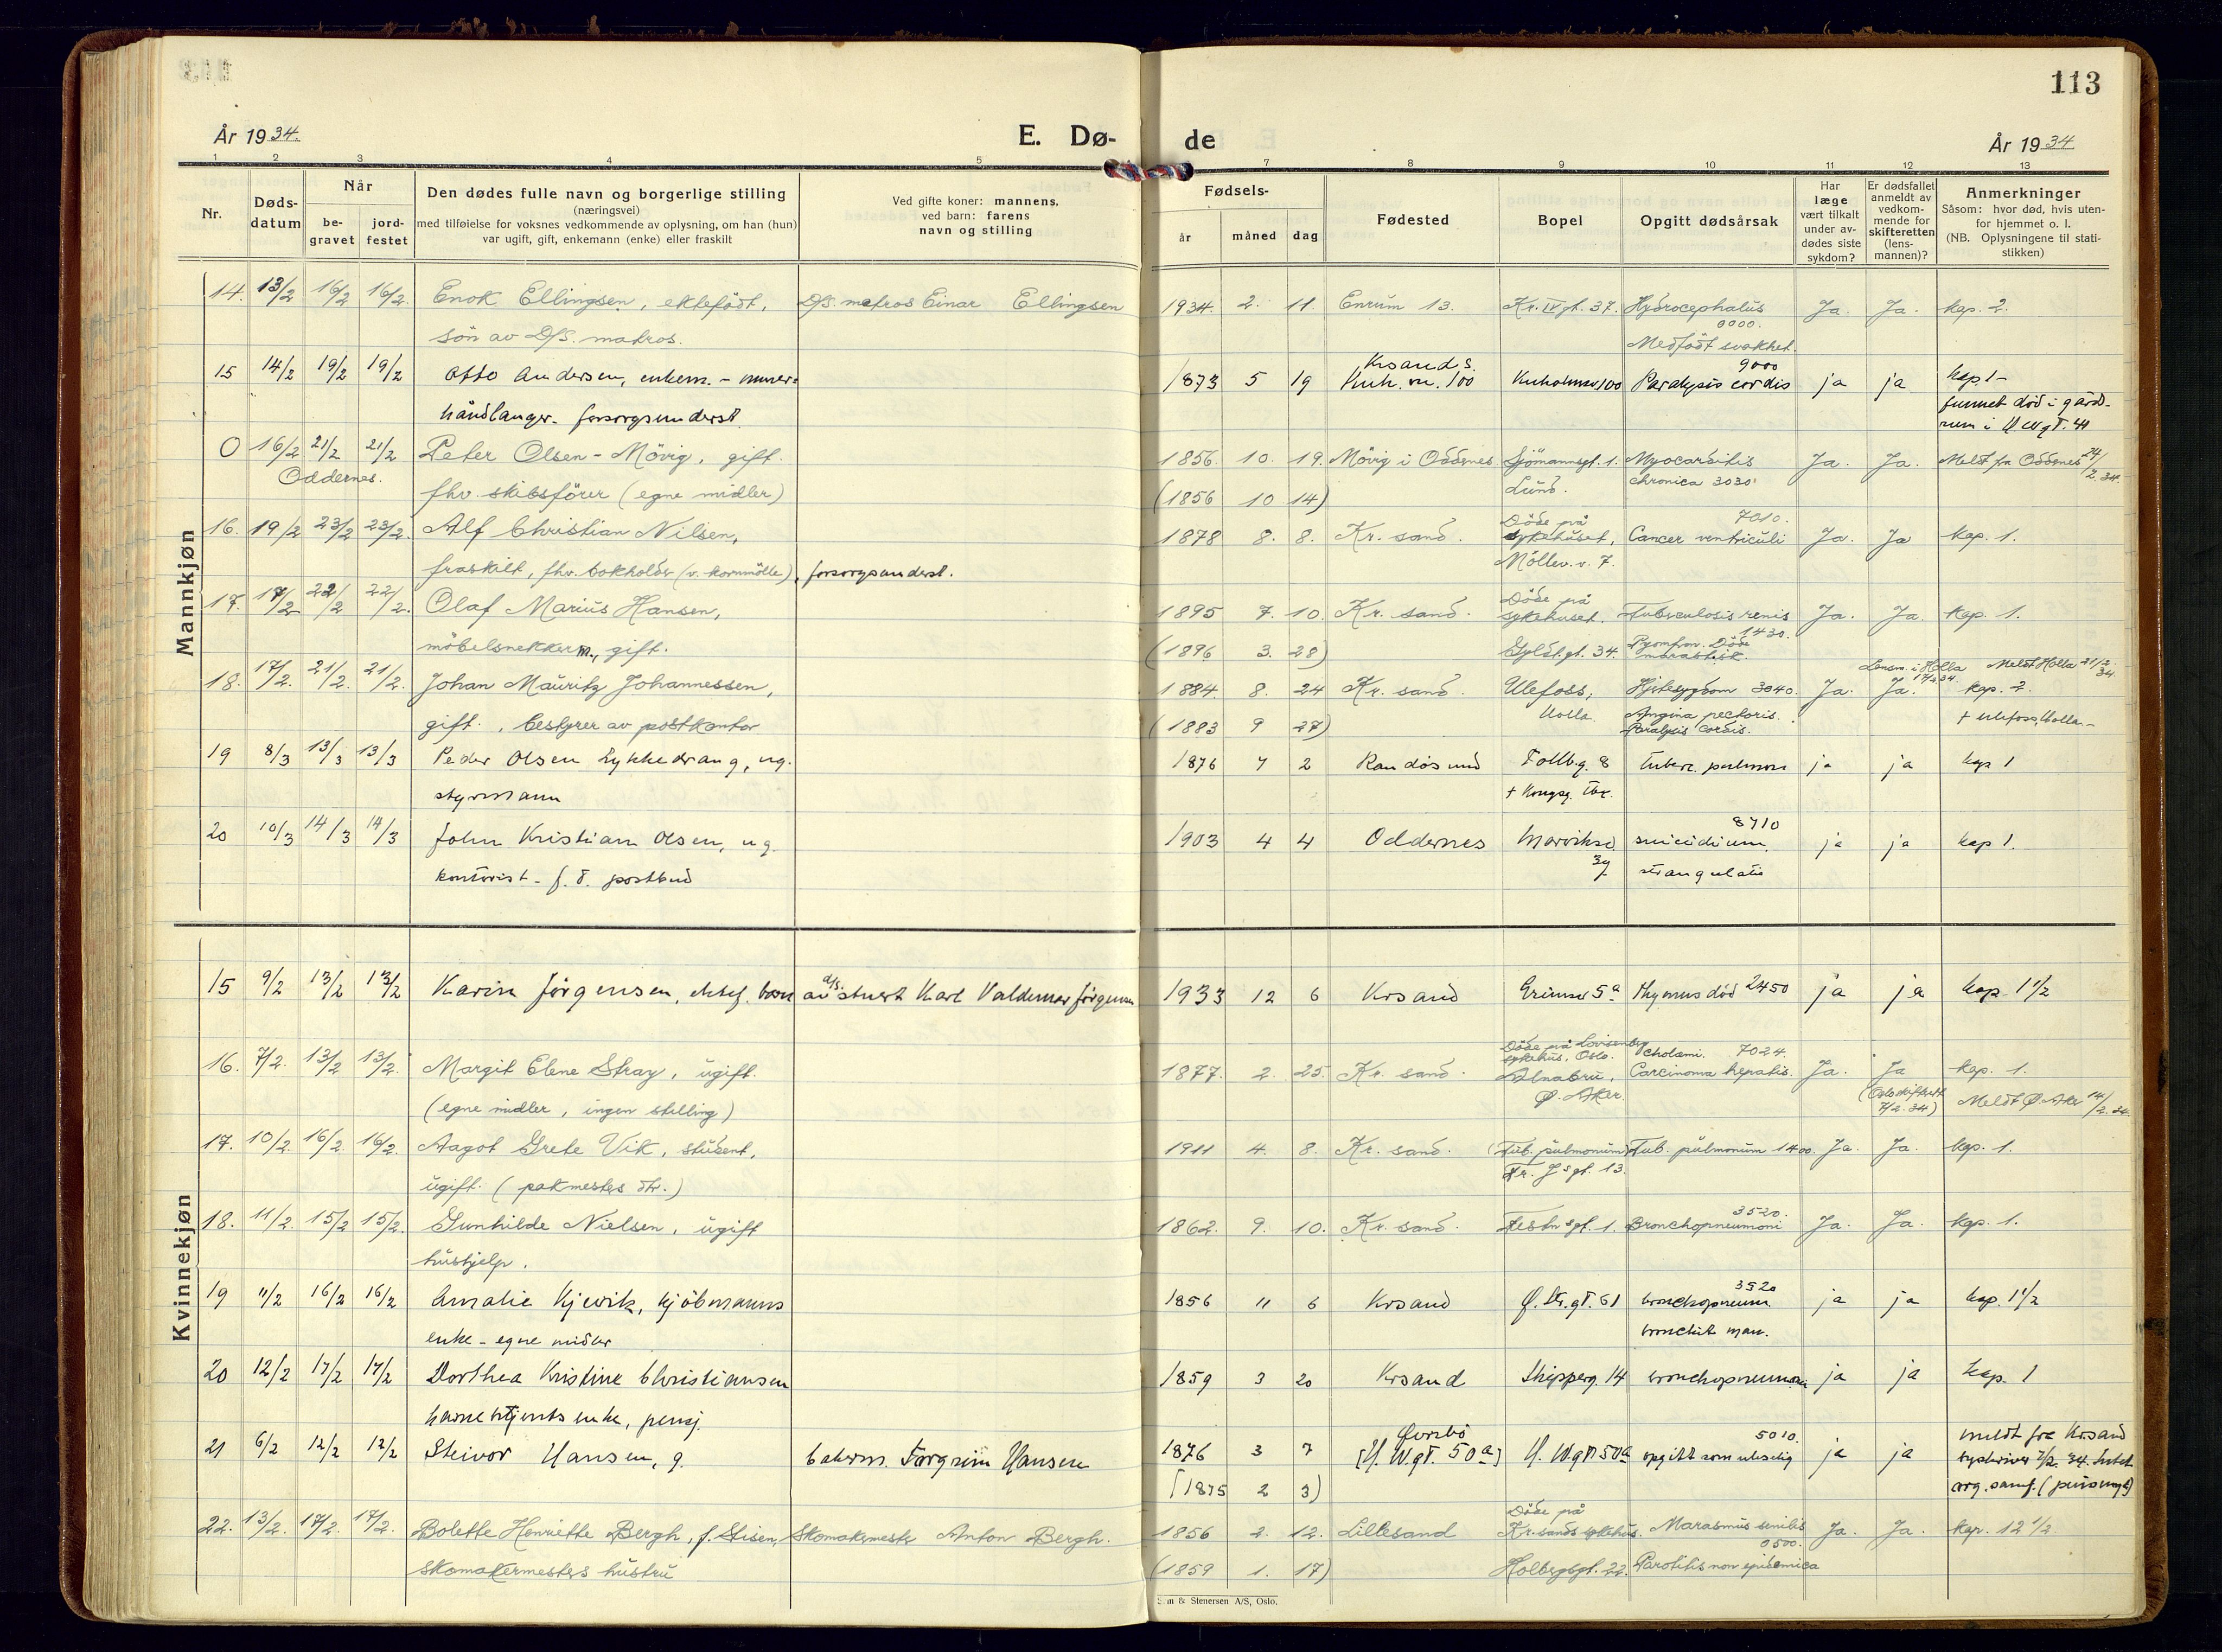 113
År 1934.
E. Dø-
de
År 1934
1 2 3 4 5
7 8 9 10 11 12 13
Nr.
Døds-
datum
Når
be-
gravet
jord-
festet
Den dødes fulle navn og borgerlige stilling
(næringsvei)
med tilføielse for voksnes vedkommende av oplysning, om han (hun)
var ugift, gift, enkemann (enke) eller fraskilt
Ved gifte koner: mannens,
ved barn: farens
navn og stilling
Fødsels-
år måned dag
Fødested
Bopel
Opgitt dødsårsak
Har
læge
vært tilkalt
under av-
dødes siste
sykdom?
Er dødsfallet
anmeldt av
vedkom-
mende for
skifteretten
(lens-
mannen)?
Anmerkninger
Såsom: hvor død, hvis uten-
for hjemmet o. l.
(NB. Oplysningene til stati-
stikken)
Mannkjøn
14. 13/2 16/2 16/2. Enok Ellingsen, ektefödt, D/S. matros Einar Ellingsen 1934. 2. 11. Enrum 13. Kr. IV gt. 37. Hydrocephalus Ja. Ja. kap. 2.
sön av D/S. matros. 0000. Medfödt svakhet.
15 14/2 19/2 19/2 Otto Andersen, enkem. - murer- 1873 5 19 Krsand S. Kuh. v. 100 Kuholmsv 100 Paralysis cordis 9000 ja ja kap 1 -
håndlanger - forsorgsunderst. funnet död i gårds-
rum i H W gt. 41
0 16/2 21/2 21/2 Peter Olsen - Mövig, gift. 1856. 10. 19. Mövig i Oddernes Sjömannsgt. 1. Myocarditis Ja. Ja. Meldt fra Oddernes 24/2. 34.
Oddernes. fhv. skibsförer (egne midler) (1856 10 14) Lund. chronica 3030
16. 19/2 23/2 23/2. Alf Christian Nilsen, 1878 8. 8. Kr. sand. Döde på sykehuset, Cancer ventriculi 7010. Ja. Ja kap. 1.
fraskilt, fhv. bokholder (v. kornmölle), forsorgsunderst. Möllev. v. 7.
17. 17/2 22/2 22/2. Olaf Marius Hansen, 1895 7. 10. Kr. sand. Döde på sykehuset. Tuberculosis renis Ja. Ja. kap. 1.
möbelsnekkerm., gift. (1896 3. 28) Gyld.gt. 34. 1430. Döde marantisk.
18. 17/2. 21/2. 21/2. Johan Mauritz Johannessen, 1884. 8. 24 Kr. sand. Ulefoss, Hjertesygdom 3040. Ja. Lensm. i Holla 17/2 34. Ja. Meldt Holla 21/2. 34. kap. 2.
gift., bestyrer av postkontor (1883 9 27) Holla. Angina pectoris. Paralysis cordis. + Ulefoss, Holla. -
19 8/3 13/3 13/3 Peder Olsen Lykkedrang, ug. 1876 7 2 Randösund Tollb.g. 8 tuberc. pulmon ja ja kap 1
styrmann + Kongsg. tbc.
20 10/3 14/3 14/3 John Kristian Olsen, ug. 1903 4 4 Oddernes Marviksv. 37 suicidium 8710 ja ja kap 1.
kontorist - f. d. postbud strangulatio
Kvinnekjøn
15 9/2 13/2 13/2 Karin Jörgensen, ektef. barn av d/s. stuert Karl Valdemar Jörgensen 1933 12 6 Krsand Grimsv 5a Thymusdöd 2450 ja ja kap 1 1/2
16. 7/2. 13/2 13/2. Margit Elene Stray, ugift. 1877. 2. 25. Kr. sand. Döde på Lovisenberg sykehus, Oslo. Alnabru, Ø. Aker. Cholæmi. 7024. Carcinoma hepatis. Ja. Ja kap. 1.
(egne midler, ingen stilling) (Oslo skifterett 7/2. 34) Meldt Ø. Aker 14/2. 34.
17. 10/2. 16/2. 16/2. Aagot Grete Vik, student, 1911 4. 8. Kr. sand. (Tub. pulmonum) Tub. pulmonum 1400. Ja. Ja. kap. 1.
ugift. (pakmesters dtr.) Kr. J sgt. 13.
18. 11/2. 15/2 15/2. Gunhilde Nielsen, ugift 1862. 9. 10. Kr. sand. Festn sgt. 1. Bronchopneumoni 3520. Ja. Ja. kap. 1.
hushjelp.
19 11/2 16/2 16/2 Amalie Kjevik, kjöbmanns 1856 11 6 Krsand Ø. Str.gt. 61 bronchopneum. 3520 ja ja kap. 1 1/2
enke - egne midler bronchit
20 12/2 17/2 17/2 Dorthea Kristine Christiansen 1859 3 20 Krsand Skipperg. 14 bronchopneumoni ja ja kap. 1
enke, pensj.
21 6/2 12/2 12/2 Steivor Hansen, g. bakerm. Torgrim Hansen 1876 3 7 [H. W gt. 50a] H. W gt. 50a 5010. opgitt som uleselig ja ja meldt fra Krsand
[1875 2 3) byskriver 7/2. 34.
22. 13/2. 17/2. 17/2. Bolette Henriette Bergh, f. Stisen, Skomakermester Anton Bergh. 1856 2. 12. Lillesand Döde på Kr.sands sykehus. Marasmus senilis Ja. Ja. kap. 1 2 1/2
skomakermesters hustru (1859 1. 17) Holbergsgt. 22. 0500. Parotitis non epidemica
& Stenersen A/S, Oslo.